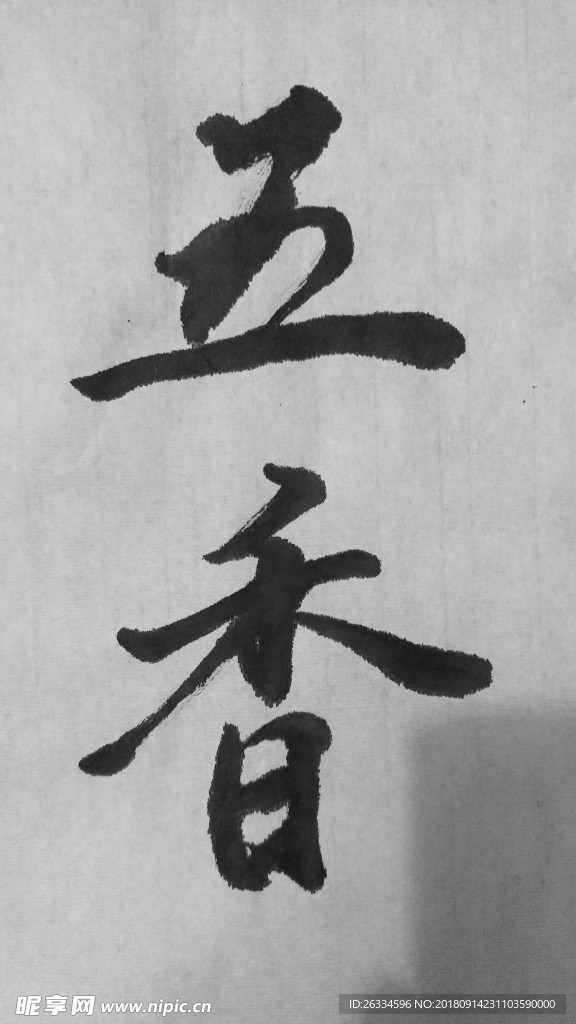 五
香
昵享网 www.nipic.cn
ID:26334596 NO:20180914231103590000